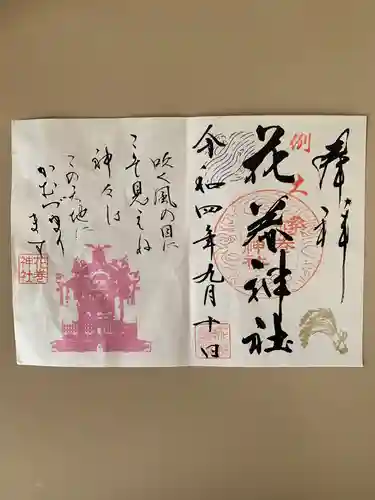 奉拝
例大
花巻神社
令和四年九月十日
吹く風の目に
こそ見えね
神々は
この天地に
かむづまり
ます
花巻
神社